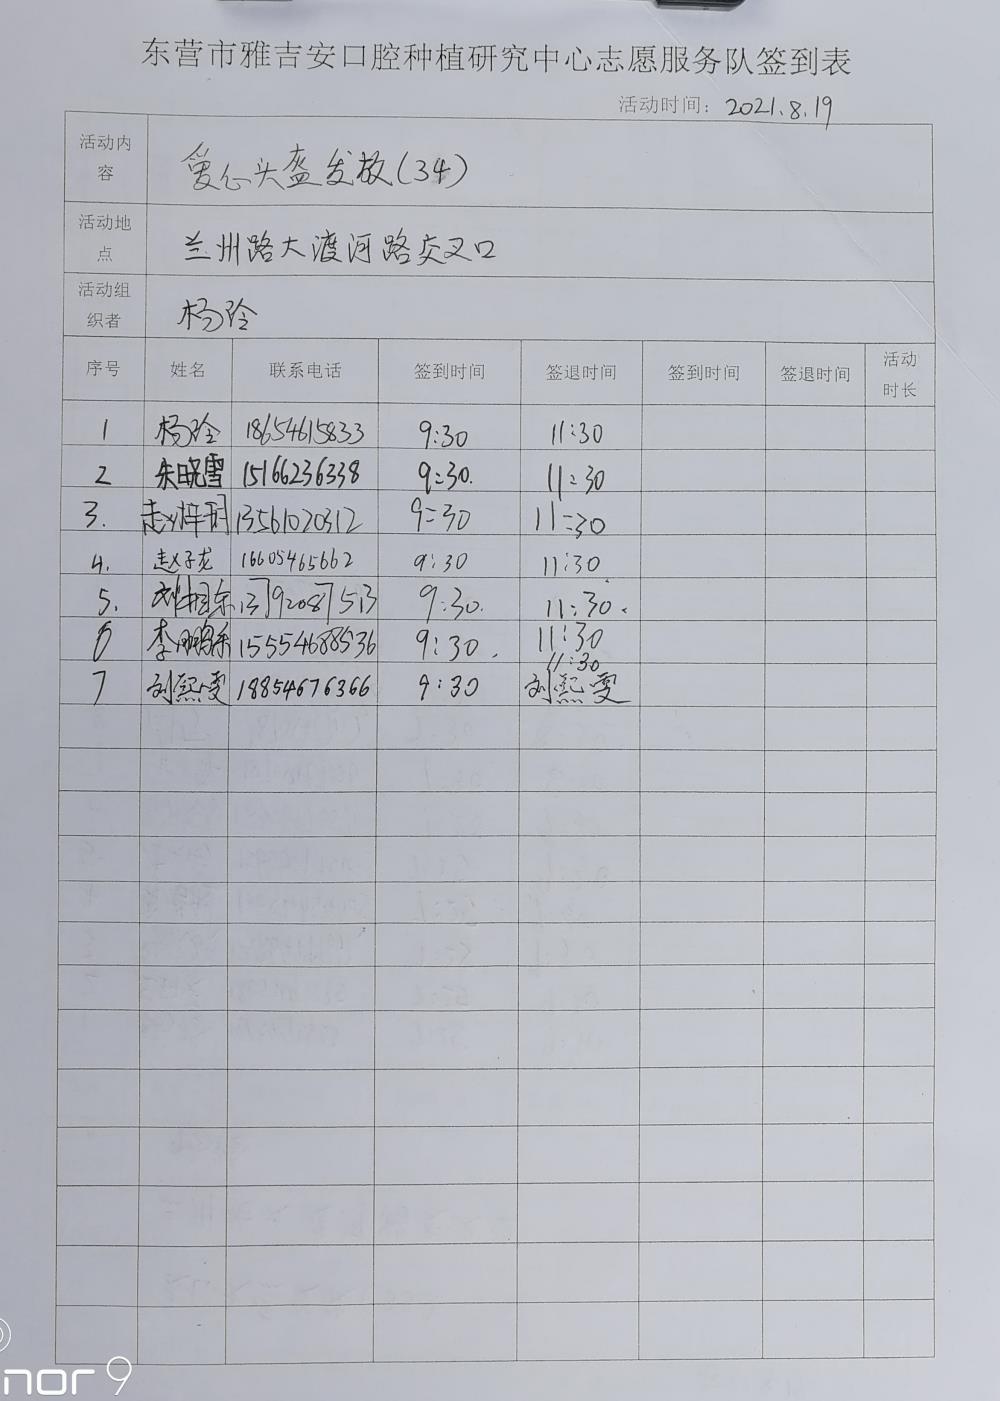 东营市雅吉安口腔种植研究中心志愿服务队签到表
活动时间：2021.8.19
活动内容 爱心头盔发放(34)
活动地点 兰州路大渡河路交叉口
活动组织者 杨玲
序号 姓名 联系电话 签到时间 签退时间 签到时间 签退时间 活动时长
1 杨玲 18654615833 9:30 11:30
2 朱晓雪 15166236338 9:30. 11:30
3. 赵梓玥 13561020312 9:30 11:30
4. 赵子龙 16605465662 9:30 11:30
5. 刘相东 13792087513 9:30. 11:30.
6 李鹏乐 15554688536 9:30. 11:30
7 刘熙雯 18854676366 9:30 11:30 刘熙雯
nor 9